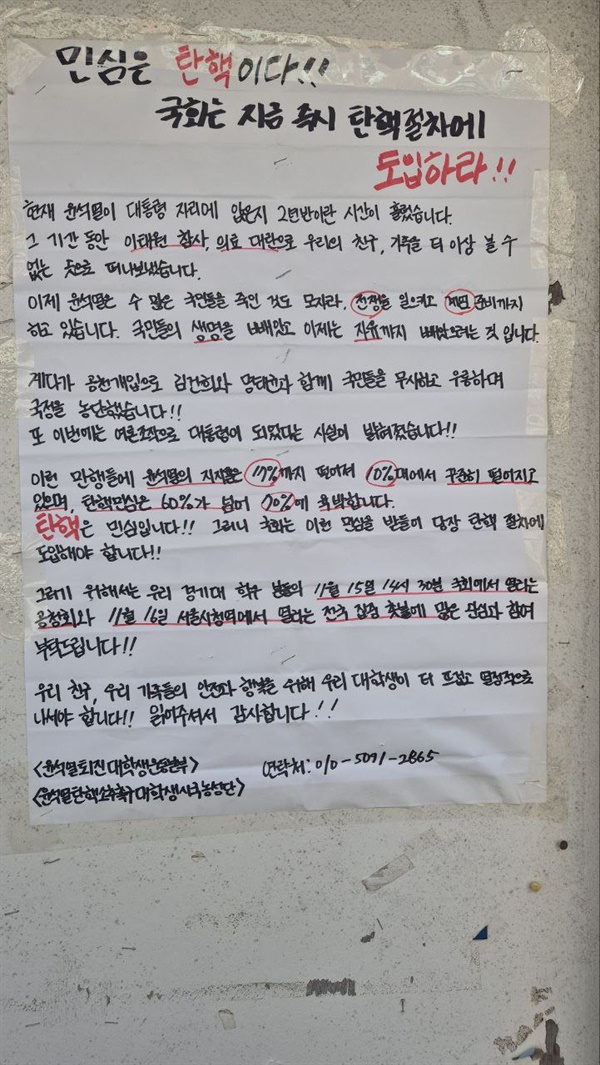 민심은 탄핵이다!!
국회는 지금 즉시 탄핵절차에
도입하라!!
현재 윤석열이 대통령 자리에 앉은지 2년반이란 시간이 흘렀습니다.
그 기간 동안 이태원 참사, 의료 대란으로 우리의 친구, 가족을 더 이상 볼 수
없는 곳으로 떠나보냈습니다.
이제 윤석열은 수 많은 국민들을 죽인 것도 모자라, 전쟁을 일으키고 계엄 준비까지
하고 있습니다. 국민들의 생명을 빼앗았고 이제는 자유까지 빼앗으려는 것 입니다.
게다가 공천개입으로 김건희와 명태균과 함께 국민들을 무시하고 우롱하며
국정을 농단했습니다!!
또 이번에는 여론조작으로 대통령이 되었다는 사실이 밝혀졌습니다!!
이런 만행들에 윤석열의 지지율은 17%까지 떨어져 10%대에서 꾸준히 떨어지고
있으며, 탄핵민심은 60%가 넘어 70%에 육박합니다.
탄핵은 민심입니다!! 그러니 국회는 이런 민심을 받들어 당장 탄핵 절차에
도입해야 합니다!!
그러기 위해서는 우리 경기대 학우 분들의 11월 15일 14시 30분 국회에서 열리는
공청회와 11월 16일 서울시청역에서 열리는 전국 집중 촛불에 많은 관심과 참여
부탁드립니다!!
우리 친구, 우리 가족들의 안전과 행복을 위해 우리 대학생이 더 뜨겁고 열정적으로
나서야 합니다!! 읽어주셔서 감사합니다!!
<윤석열퇴진대학생운동본부> 연락처: 010-5091-2865
<윤석열탄핵소추촉구대학생시국농성단>